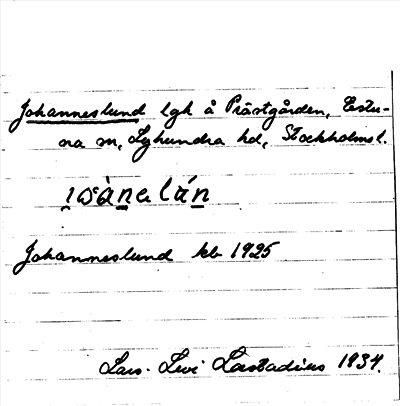 Johanneslund lgh å Prästgården, Estu-
na sn, Lyhundra hd, Stockholms l.
Johanneslund kb 1925
Lars-Levi Læstadius 1934.